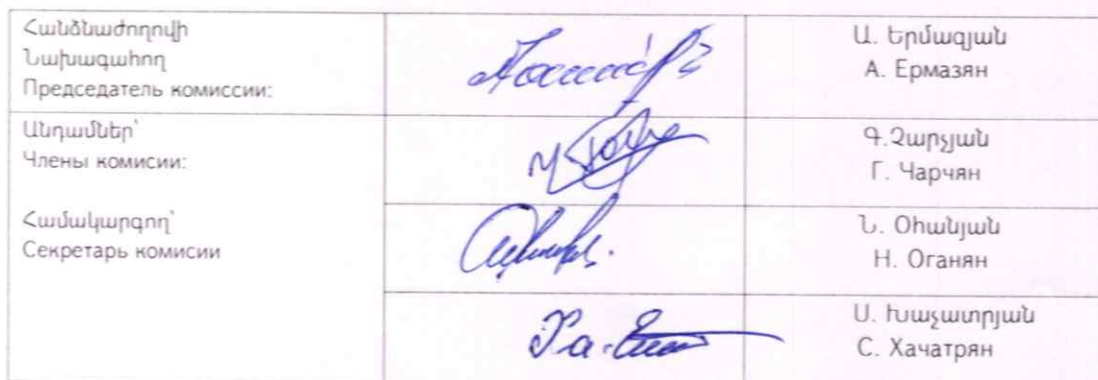 Հանձնաժողովի
Նախագահող
Председатель комиссии:
Ա. Երմազյան
А. Ермазян
Անդամներ՝
Члены комисии:
Գ.Չարչյան
Г. Чарчян
Համակարգող՝
Секретарь комисии
Ն. Օհանյան
Н. Оганян
Ս. Խաչատրյան
С. Хачатрян